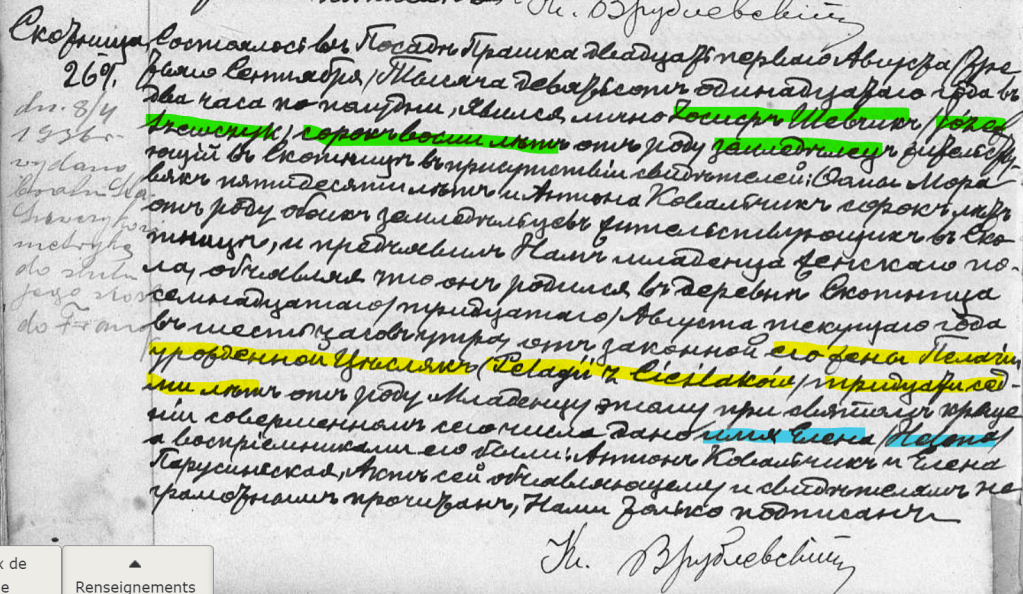 Кс. Врублевскій
Скотница
26%.
Состоялось въ Посадѣ Прашка двадцать перваго Августа /Тре
тьяго Сентября/ Тысяча девятьсотъ одинадцатаго года въ
два часа по полудни, Явился лично Іосифъ Шевчикъ /Józef
Szewczyk/, сорокъ восми лѣтъ отъ роду земледѣлецъ жительству
ющій въ Скотницѣ въ присутствіи свидѣтелей: Мора
вякъ пятидесяти лѣтъ и Антона Ковальчикъ сорокъ лѣтъ
отъ роду обоихъ земледѣльцевъ жительствующихъ въ Ско
тницѣ, и предъявилъ Намъ младенца женскаго по-
ла, объявляя что онъ родился въ деревнѣ Скотница
семнадцатаго /тридцатаго/ Августа текущаго года
въ шесть часовъ утра, отъ законной его жены Пелагіи
урожденной Цесьлякъ /Pelagii z Cieślaków/, тридцати сед-
ми лѣтъ отъ роду. Младенцу этому при святомъ креще-
ніи совершенномъ сего числа дано имя Елена /Helena/
а воспріемниками его были: Антонъ Ковальчикъ и Елена
Актъ сей объявляющему и свидѣтелямъ не
грамотнымъ прочитанъ, Нами только подписанъ
Кс. Врублевскій
dn. 8/4
1936 r.
wydano
metrykę
do ślubu
do
x de
e
Renseignements